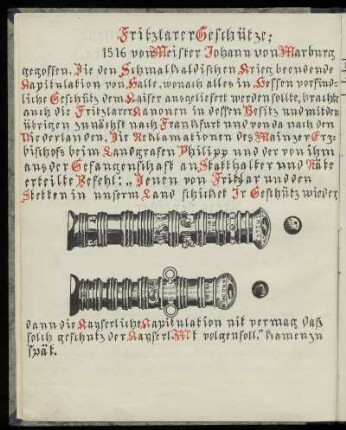 Fritzlarer Geschütze:
1516 von Meister Johann von Marburg
gegossen. Die den Schmalkaldischen Krieg beendende
Kapitulation von Halle, wonach alles in Hessen vorfind-
liche Geschütz dem Kaiser ausgeliefert werden sollte, brachte
auch die Fritzlarer Kanonen in dessen Besitz und mit den
übrigen zunächst nach Frankfurt und von da nach den
Niederlanden. Die Reklamationen des Mainzer Erz-
bischofs beim Landgrafen Philipp und der von ihm
aus der Gefangenschaft an Statthalter und Räte
erteilte Befehl: „Denen von Fritzlar und den
Stetten in unserm Land schicket Ir Geschütz wieder
dann die Kayserliche Kapitulation nit vermag daß
solch geschutz der Kayserl. Mt volgen soll." kamen zu
spät.